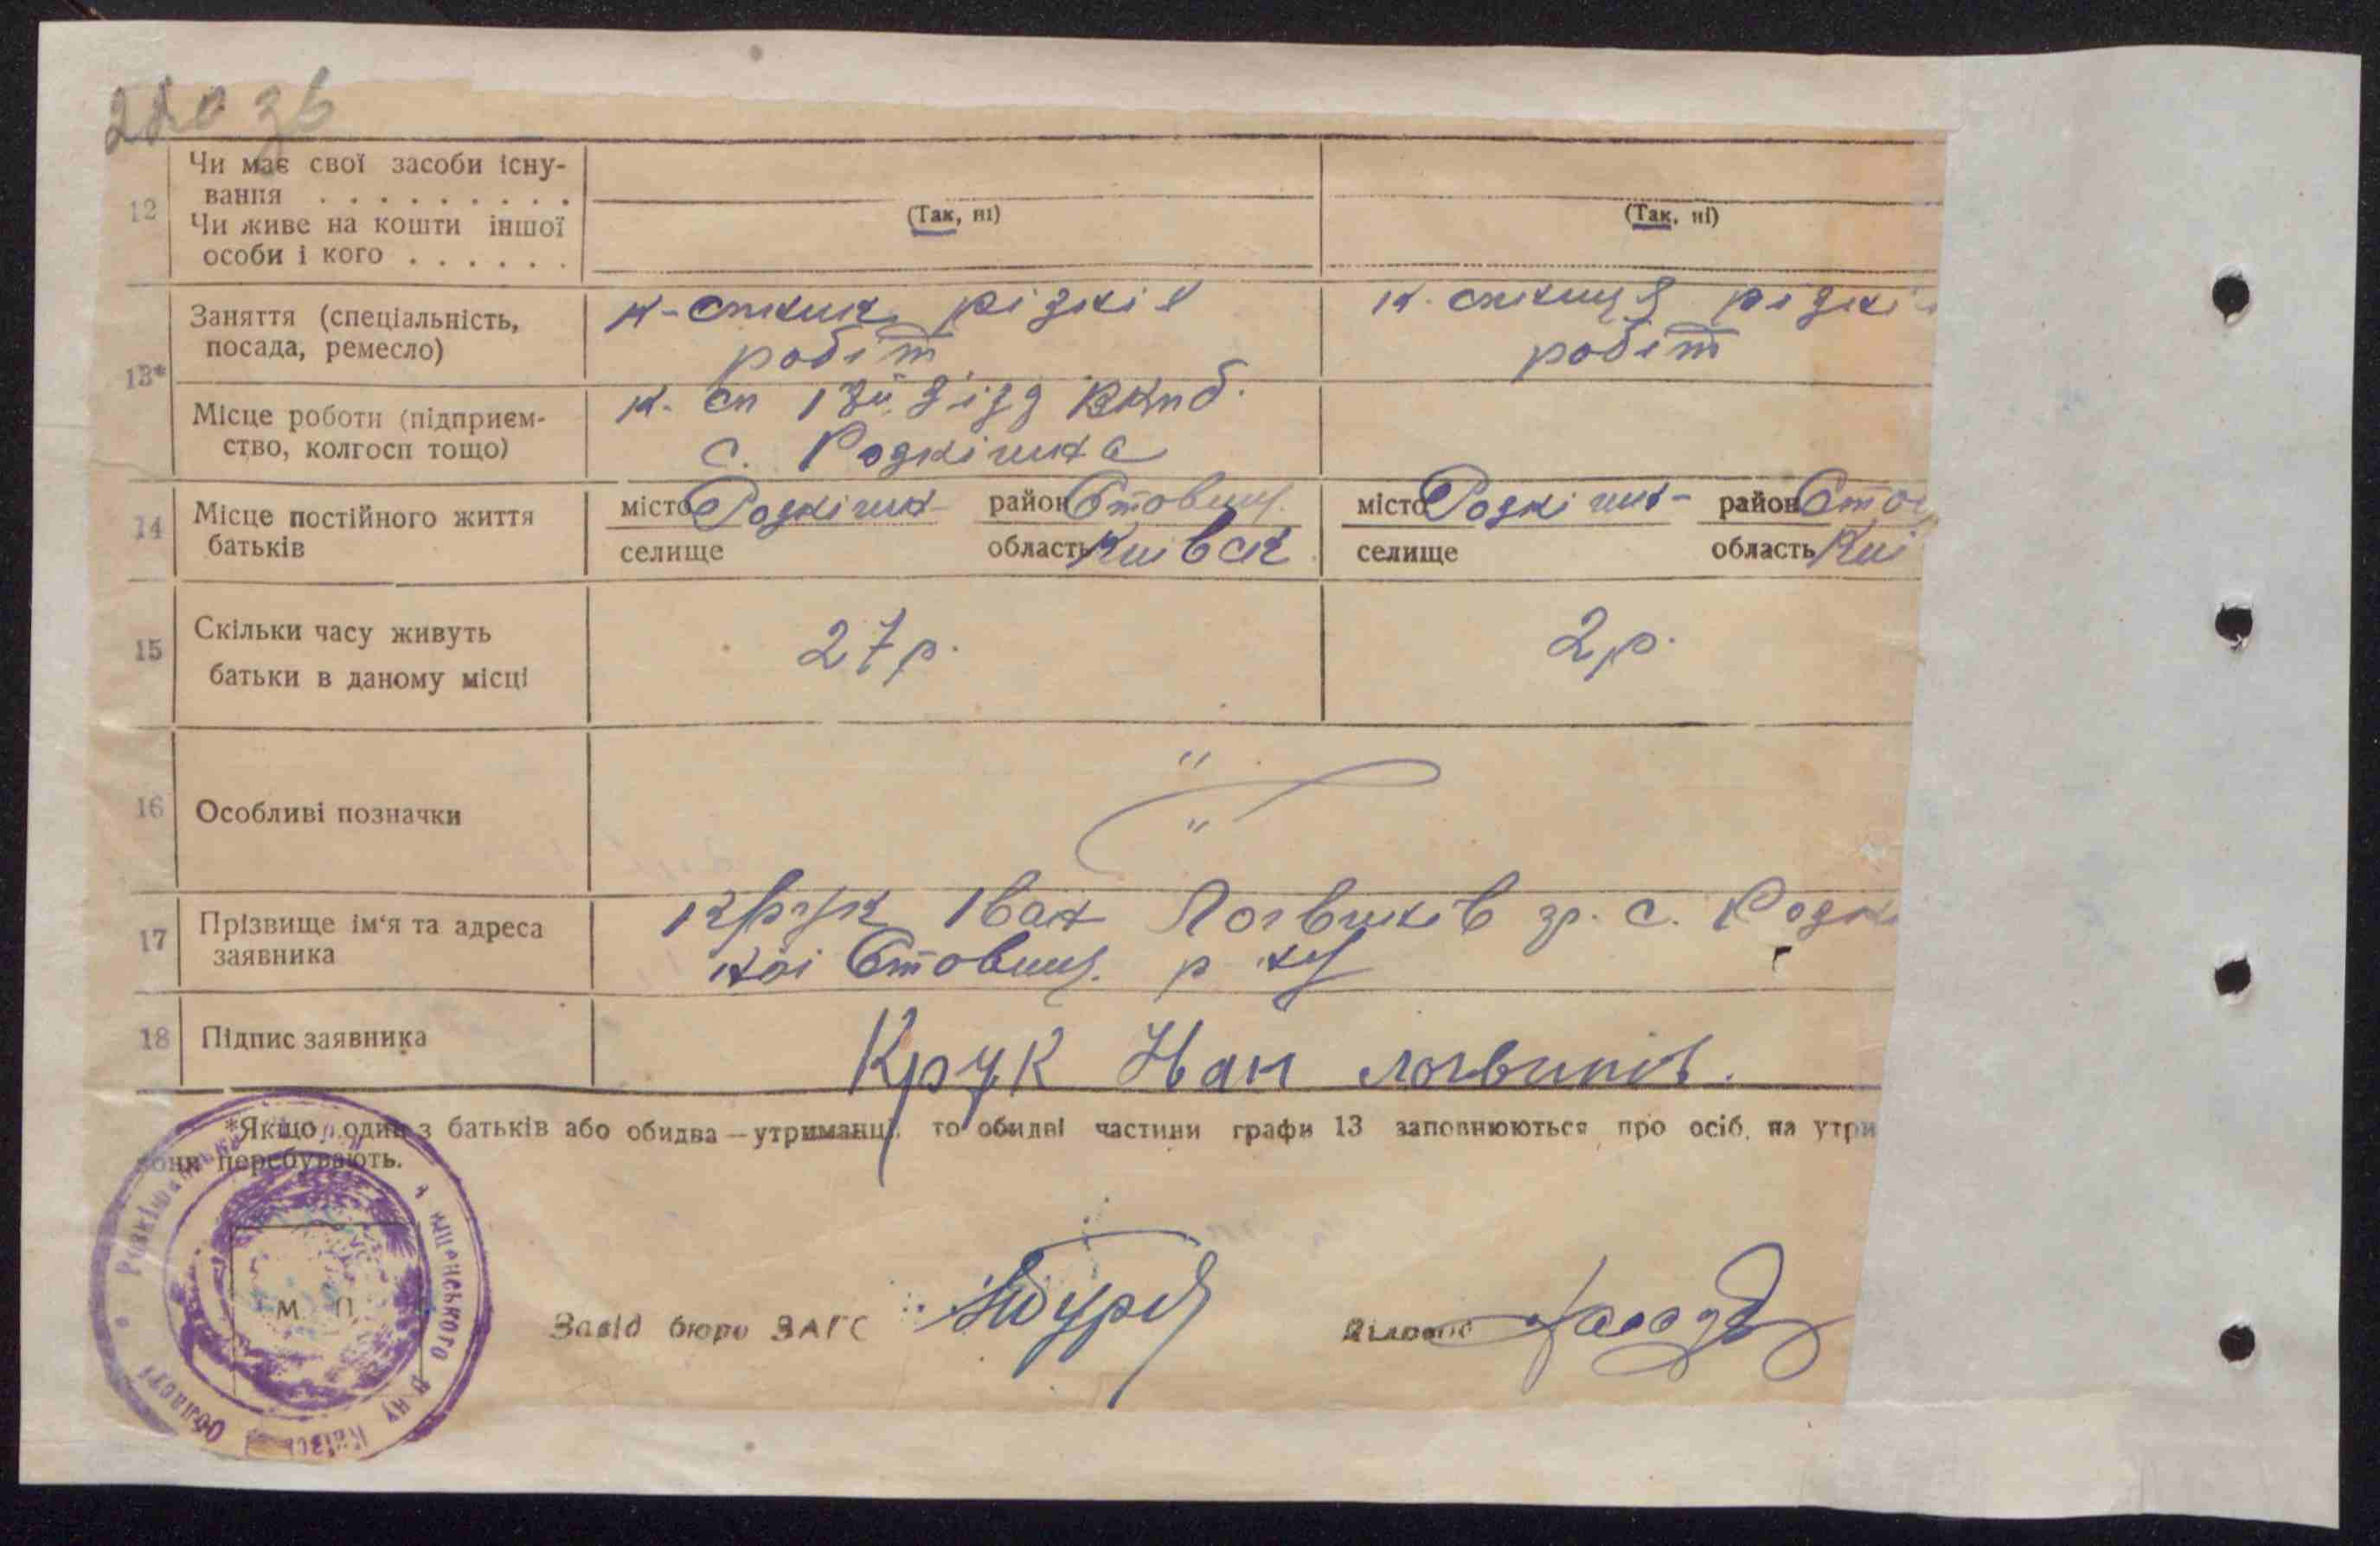 220 зв
12 Чи має свої засоби існу-
вання . . . . . . . . .
Чи живе на кошти іншої
особи і кого . . . . . .
(Так, ні) (Так, ні)
13* Заняття (спеціальність,
посада, ремесло)
к-спник різків к. спниця різкі
робіт робіт
Місце роботи (підприєм-
ство, колгосп тощо)
к. сп 17й зізд ВКпб.
с. Розкішна
14 Місце постійного життя
батьків
місто Розкішна район Ставищ. місто Розкішна район Ста
селище область Київск селище область Киі
15 Скільки часу живуть
батьки в даному місці
27 р. 2 р.
16 Особливі позначки
17 Прізвище ім'я та адреса
заявника
Крук Іван Логвинів гр. с. Розкі
ної Ставищ. р ну
18 Підпис заявника
Крук Иван логвинів.
*Якщо один з батьків або обидва — утриманці, то обидві частини графи 13 заповнюються про осіб, на утри
вони перебувають.
М П
Розкішнянська
Області
Завід бюро ЗАГС
Діловод